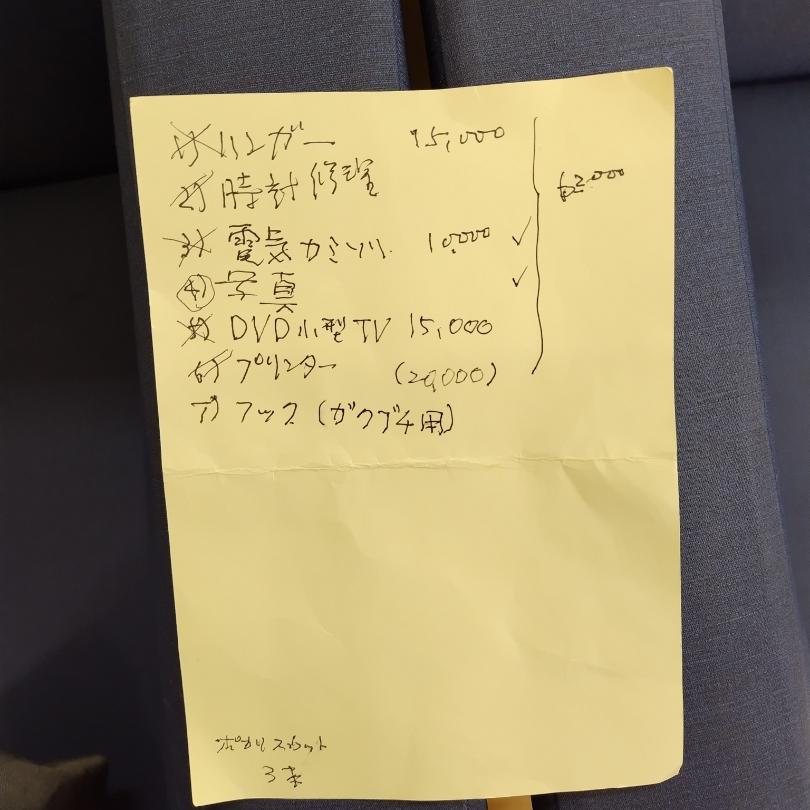 1) ハンガー 15,000
2) 時計修理
3) 電気カミソリ 10,000 ✓
4) 写真 ✓
5) DVD小型TV 15,000
6) プリンター (20,000)
7) フック (ガクブチ用)
62000
ポカリスウェット
3本